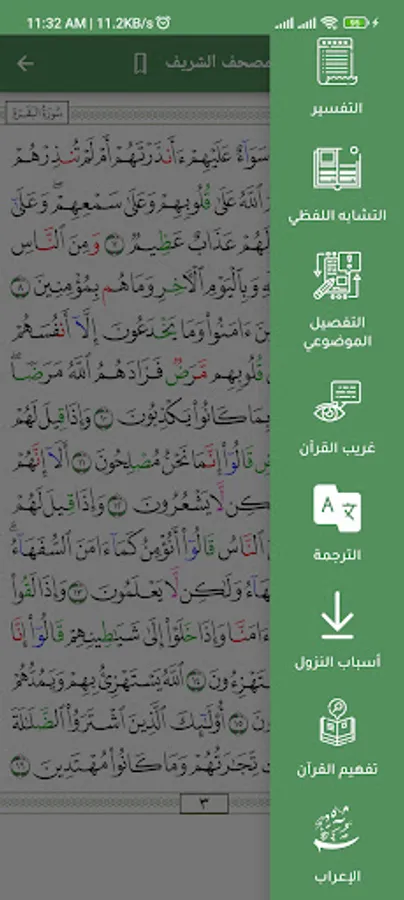 11:32 AM | 11.2KB/s
95
مصحف الشريف
سُورَةُ البَقَرَةِ
سَوَآءٌ عَلَيْهِمْ ءَأَنذَرْتَهُمْ أَمْ لَمْ تُنذِرْهُمْ
ٱللَّهُ عَلَىٰ قُلُوبِهِمْ وَعَلَىٰ سَمْعِهِمْۖ وَعَلَىٰٓ
لَهُمْ عَذَابٌ عَظِيمٌ ٧ وَمِنَ ٱلنَّاسِ
وَبِٱلْيَوْمِ ٱلْأَخِرِ وَمَا هُم بِمُؤْمِنِينَ ٨
ءَامَنُوا۟ وَمَا يَخْدَعُونَ إِلَّآ أَنفُسَهُمْ
قُلُوبِهِم مَّرَضٌ فَزَادَهُمُ ٱللَّهُ مَرَضًاۖ
بِمَا كَانُوا۟ يَكْذِبُونَ ١٠ وَإِذَا قِيلَ لَهُمْ
قَالُوٓا۟ إِنَّمَا نَحْنُ مُصْلِحُونَ ١١ أَلَآ إِنَّهُمْ
لَّا يَشْعُرُونَ ١٢ وَإِذَا قِيلَ لَهُمْ
ٱلنَّاسُ قَالُوٓا۟ أَنُؤْمِنُ كَمَآ ءَامَنَ ٱلسُّفَهَآءُۗ
وَلَٰكِن لَّا يَعْلَمُونَ ١٣ وَإِذَا لَقُوا۟
ءَامَنَّا وَإِذَا خَلَوْا۟ إِلَىٰ شَيَٰطِينِهِمْ قَالُوٓا۟ إِنَّا
١٤ ٱللَّهُ يَسْتَهْزِئُ بِهِمْ وَيَمُدُّهُمْ
١٥ أُو۟لَٰٓئِكَ ٱلَّذِينَ ٱشْتَرَوُا۟ ٱلضَّلَٰلَةَ
تِّجَٰرَتُهُمْ وَمَا كَانُوا۟ مُهْتَدِينَ ١٦
٣
التفسير
التشابه اللفظي
التفصيل
الموضوعي
غريب القرآن
الترجمة
أسباب النزول
تفهيم القرآن
الإعراب